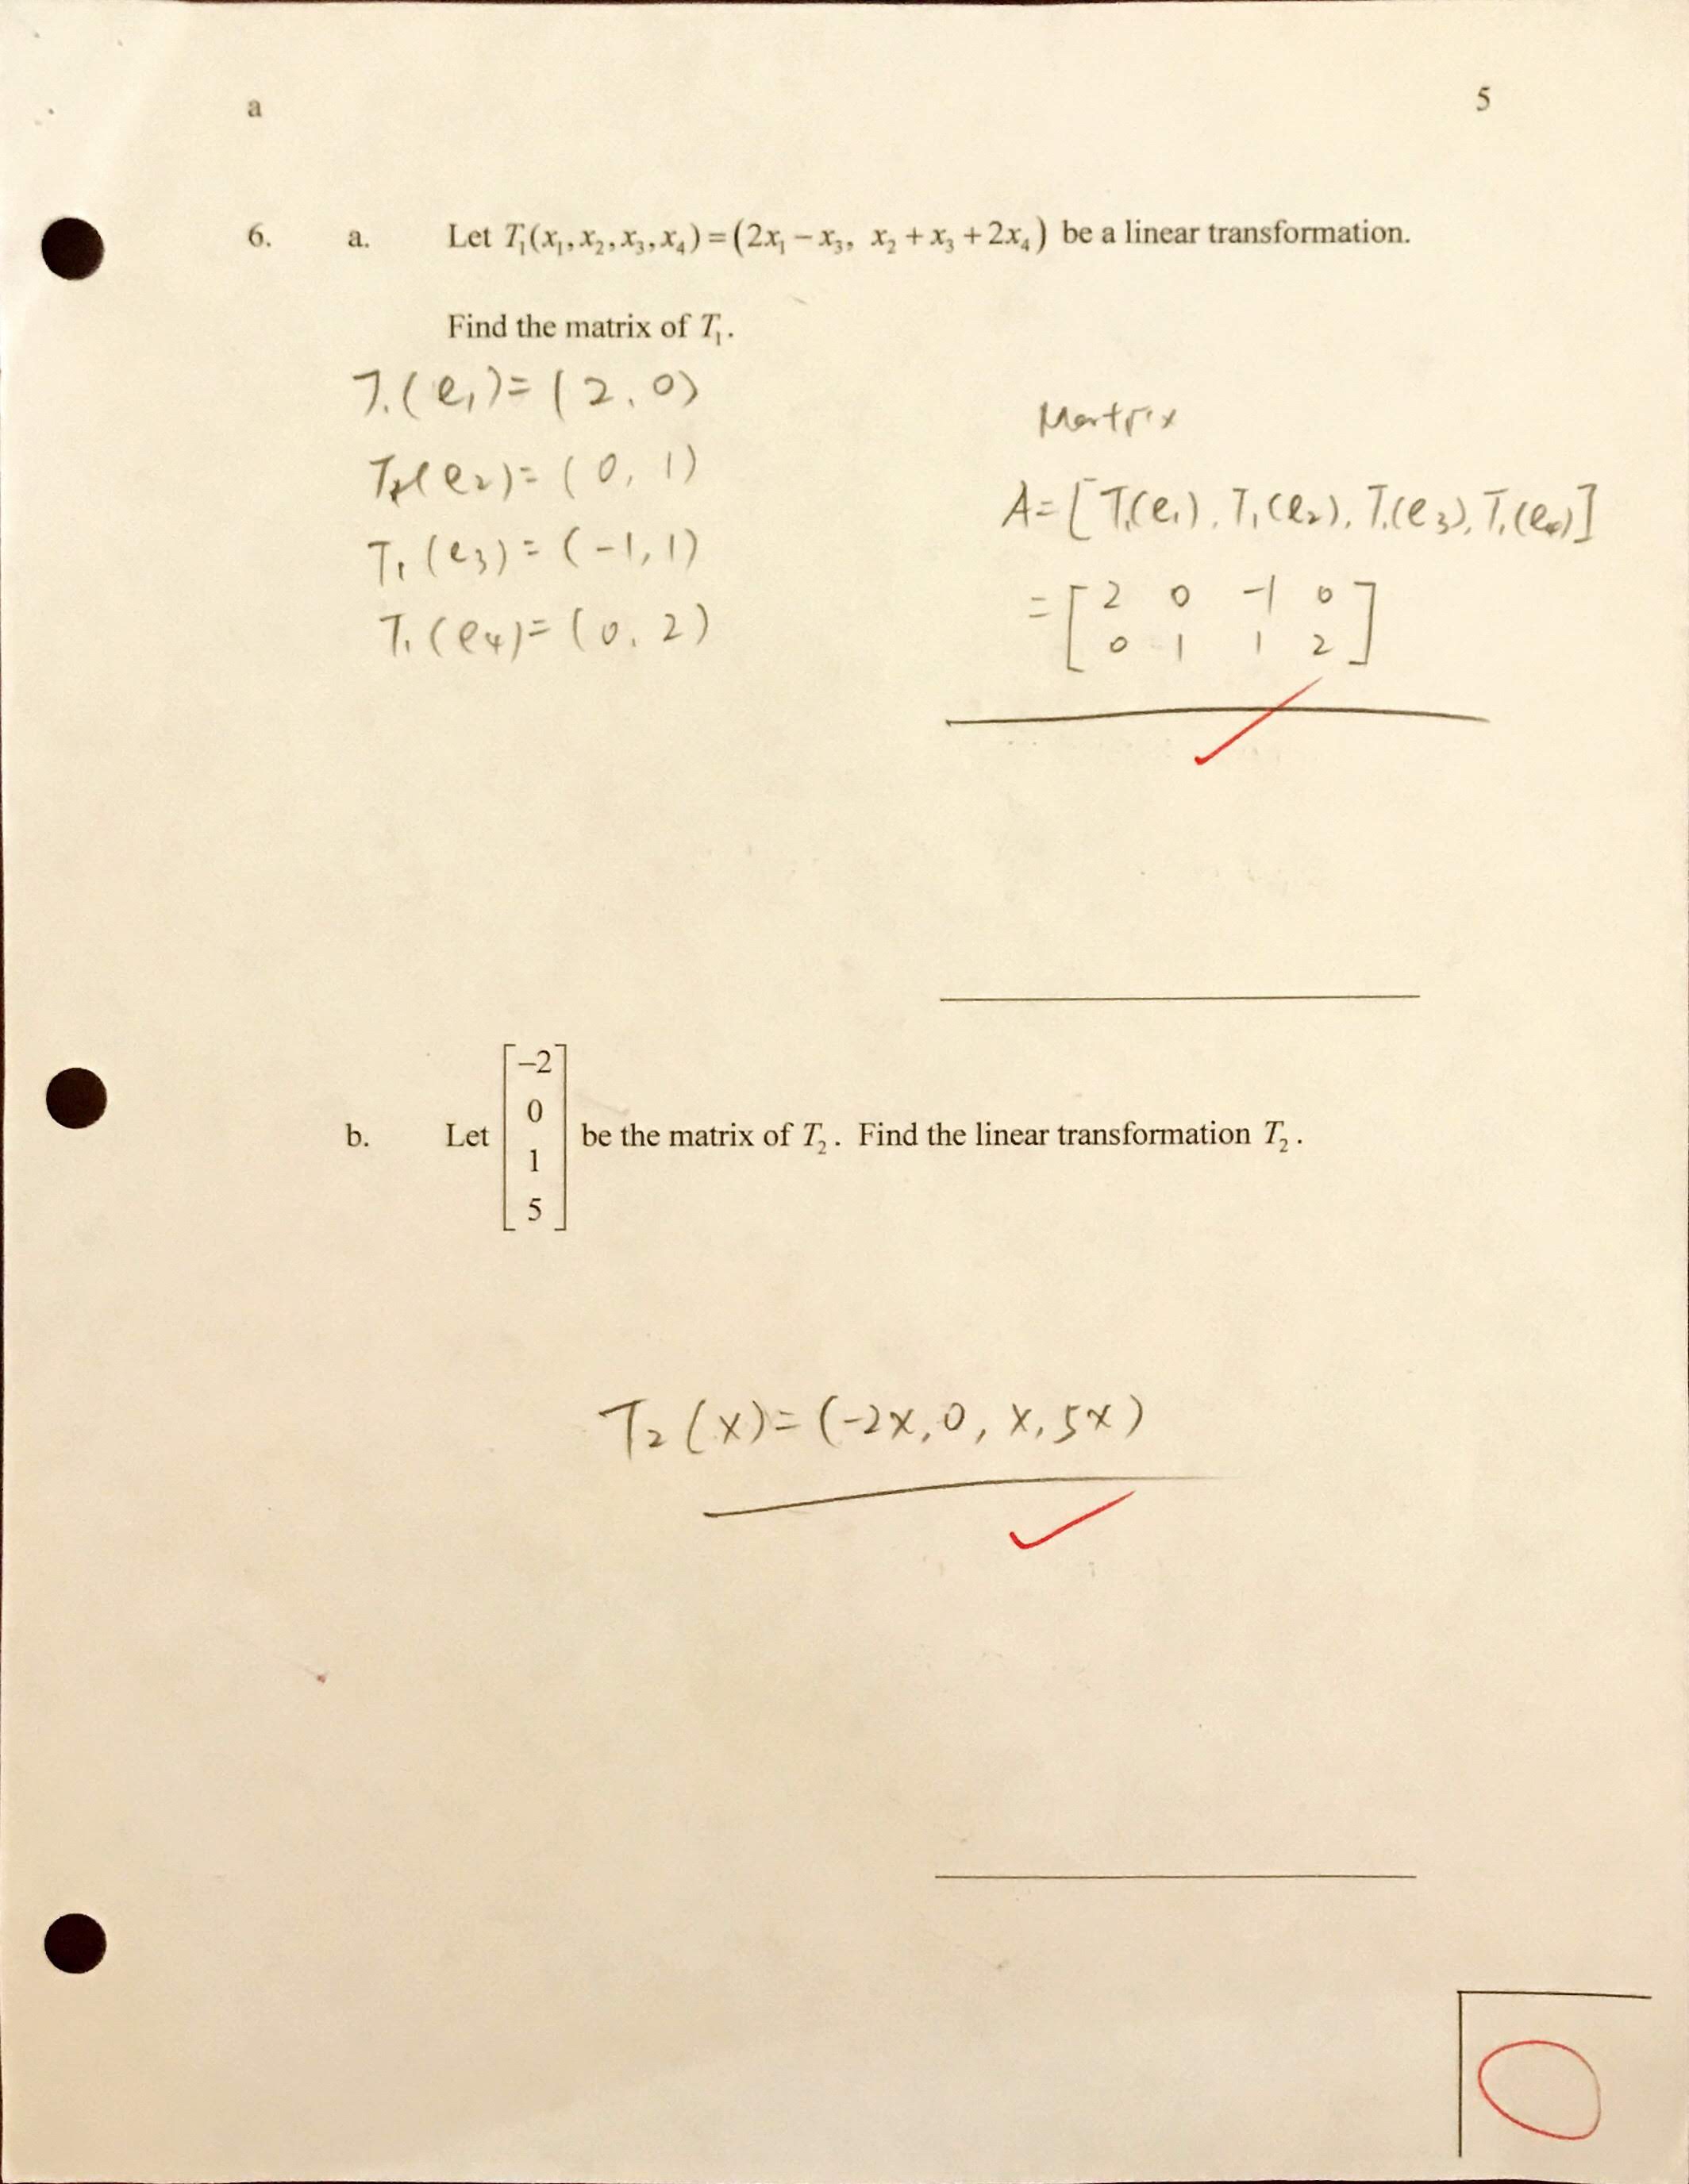 a 5
6. a. Let T₁(x₁, x₂, x₃, x₄) = (2x₁ − x₃, x₂ + x₃ + 2x₄) be a linear transformation.
Find the matrix of T₁.
T₁(e₁) = (2, 0)
T₁(e₂) = (0, 1)
T₁(e₃) = (-1, 1)
T₁(e₄) = (0, 2)
Martrix
A = [T₁(e₁), T₁(e₂), T₁(e₃), T₁(e₄)]
= [2 0 -1 0
0 1 1 2]
b. Let [−2 0 1 5] be the matrix of T₂. Find the linear transformation T₂.
T₂(x) = (-2x, 0, x, 5x)
0